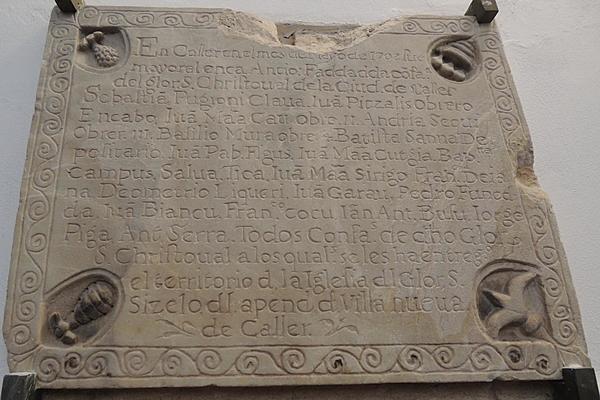 En Caller en el mes de Mayo de 1702 sie
mayoral en ca. Antio. Fadda d la Cofa.
del Glor. S. Christoual de la Ciud. de Caller
Sebastiā Fugioni Claua. Iuā Pitzalis obrero
En cabo, Iuā Ma. Cau obre. II. Andria Secui
Obrer. III. Basilio Mura obre 4 Batista Sanna De
positario. Iuā Pab. Figus. Iuā Ma. Cutgia. Bap.ta
Campus, Salua. Tica, Iuā Ma. Sirigo. Fra. Deia
na. Demetrio Liqueri. Iuā Garau. Pedro Funed
da. Iuā Biancu. Fran.co Cocu. Iān Ant. Busu. Iorge
Piga Ant. Serra. Todos Confa.s de d.ho Glo.
S. Christoual a los qual. se les ha entreg.
el territorio d. la Iglesia dl Glor. S.
Sizelo dl apend. d Villa nueva
de Caller.